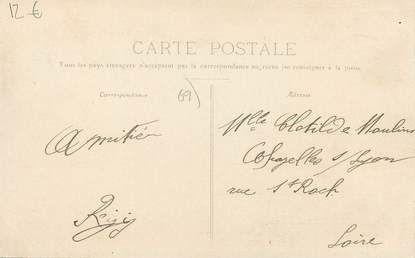 12 €
CARTE POSTALE
Tous les pays étrangers n'acceptent pas la correspondance au recto (se renseigner à la poste)
Correspondance
69)
Adresse
Amitiés
Régis
Mlle Clotilde Moulins
Chazelles s/Lyon
rue St Roch
Loire